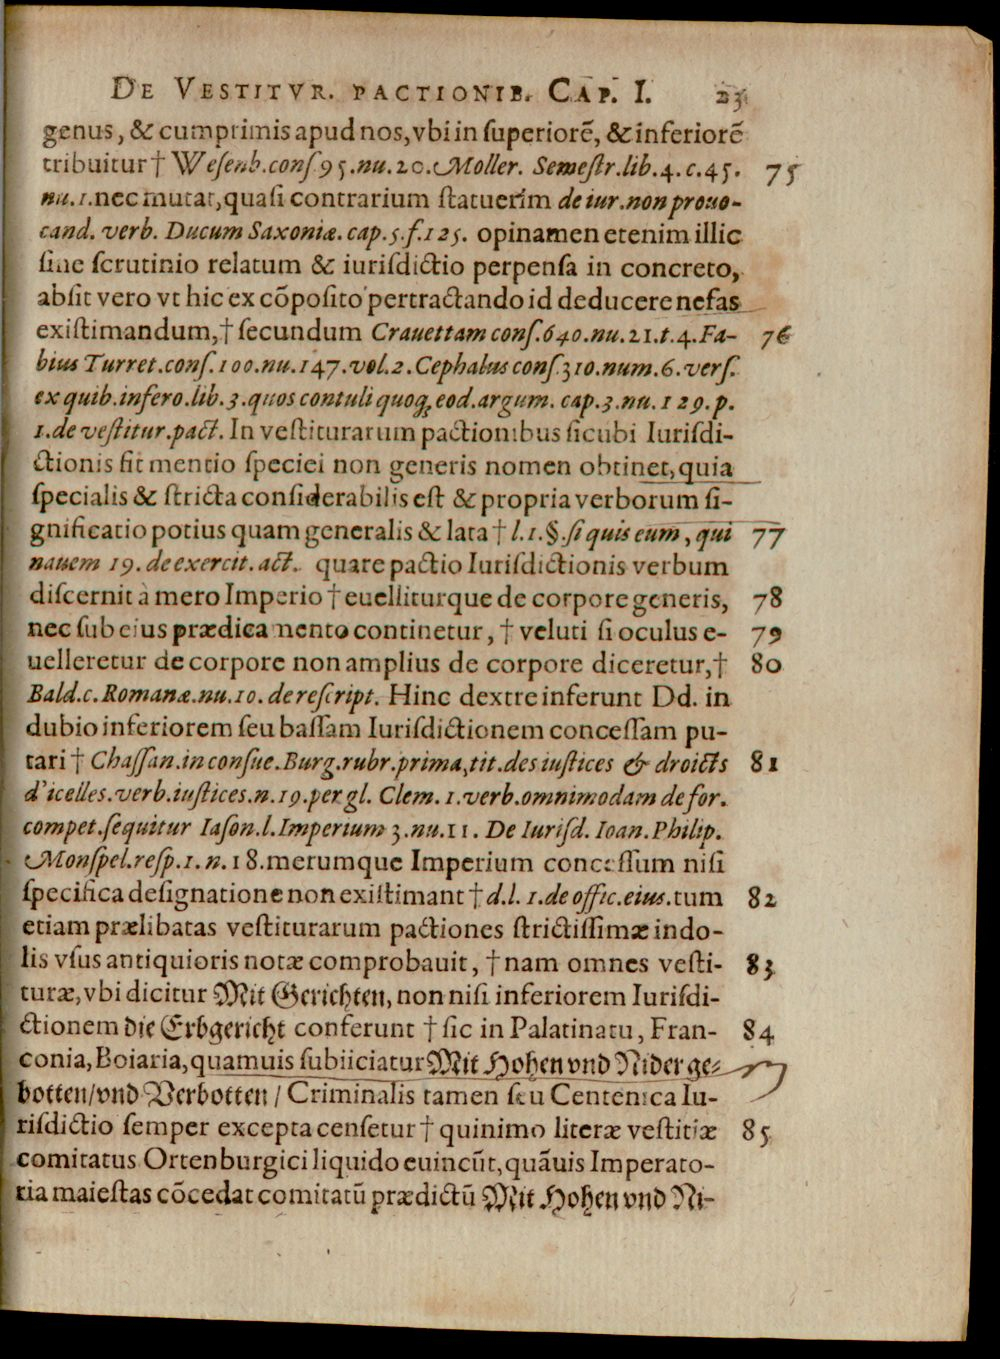 De Vestitvr. pactionib. Cap. I. 23
genus, & cumprimis apud nos, vbi in ſuperiorē, & inferiorē
tribuitur † Weſenb. conſ 95. nu. 20. Moller. Semeſtr. lib. 4. c. 45. 75
nu. 1. nec mutat, quaſi contrarium ſtatuerim de iur. non prouo-
cand. verb. Ducum Saxoniæ. cap. 5. f. 125. opinamen etenim illic
ſine ſcrutinio relatum & iurisdictio perpenſa in concreto,
abſit vero vt hic ex cōpoſito pertractando id deducere nefas
exiſtimandum, † ſecundum Crauettam conſ. 640. nu. 21. t. 4. Fa- 76
bius Turret. conſ. 100. nu. 147. vol. 2. Cephalus conſ. 310. num. 6. verſ.
ex quib. infero. lib. 3. quos contuli quoq; eod. argum. cap. 3. nu. 129. p.
1. de veſtitur. pact. In veſtiturarum pactionibus ſicubi Iurisdi-
ctionis fit mentio ſpeciei non generis nomen obtinet, quia
ſpecialis & ſtricta conſiderabilis eſt & propria verborum ſi-
gnificatio potius quam generalis & lata † l. 1. §. ſi quis eum, qui 77
nauem 19. de exercit. act. quare pactio Iurisdictionis verbum
diſcernit à mero Imperio † euelliturque de corpore generis, 78
nec ſub eius prædicamento continetur, † veluti ſi oculus e- 79
uelleretur de corpore non amplius de corpore diceretur, † 80
Bald. c. Romanæ. nu. 10. de reſcript. Hinc dextre inferunt Dd. in
dubio inferiorem ſeu baſſam Iurisdictionem conceſſam pu-
tari † Chaſſan. in conſue. Burg. rubr. prima, tit. des iuſtices & droicts 81
d'icelles. verb. iuſtices. n. 19. per gl. Clem. 1. verb. omnimodam de for.
compet. ſequitur Iaſon. l. Imperium 3. nu. 11. De Iurisd. Ioan. Philip.
Monſpel. reſp. 1. n. 18. merumque Imperium conceſſum niſi
ſpecifica deſignatione non exiſtimant † d. l. 1. de offic. eius. tum 82
etiam prælibatas veſtiturarum pactiones ſtrictiſſimæ indo-
lis vſus antiquioris notæ comprobauit, † nam omnes veſti- 83
turæ, vbi dicitur Mit Gerichten, non niſi inferiorem Iurisdi-
ctionem die Erbgericht conferunt † ſic in Palatinatu, Fran- 84
conia, Boiaria, quamuis ſubiiciatur Mit Hohen vnd Nider ge-
botten/ vnd Verbotten / Criminalis tamen ſeu Centenica Iu-
risdictio ſemper excepta cenſetur † quinimo literæ veſtitiæ 85
comitatus Ortenburgici liquido euincūt, quāuis Imperato-
ria maieſtas cōcedat comitatū prædictū Mit Hohen vnd Ni-